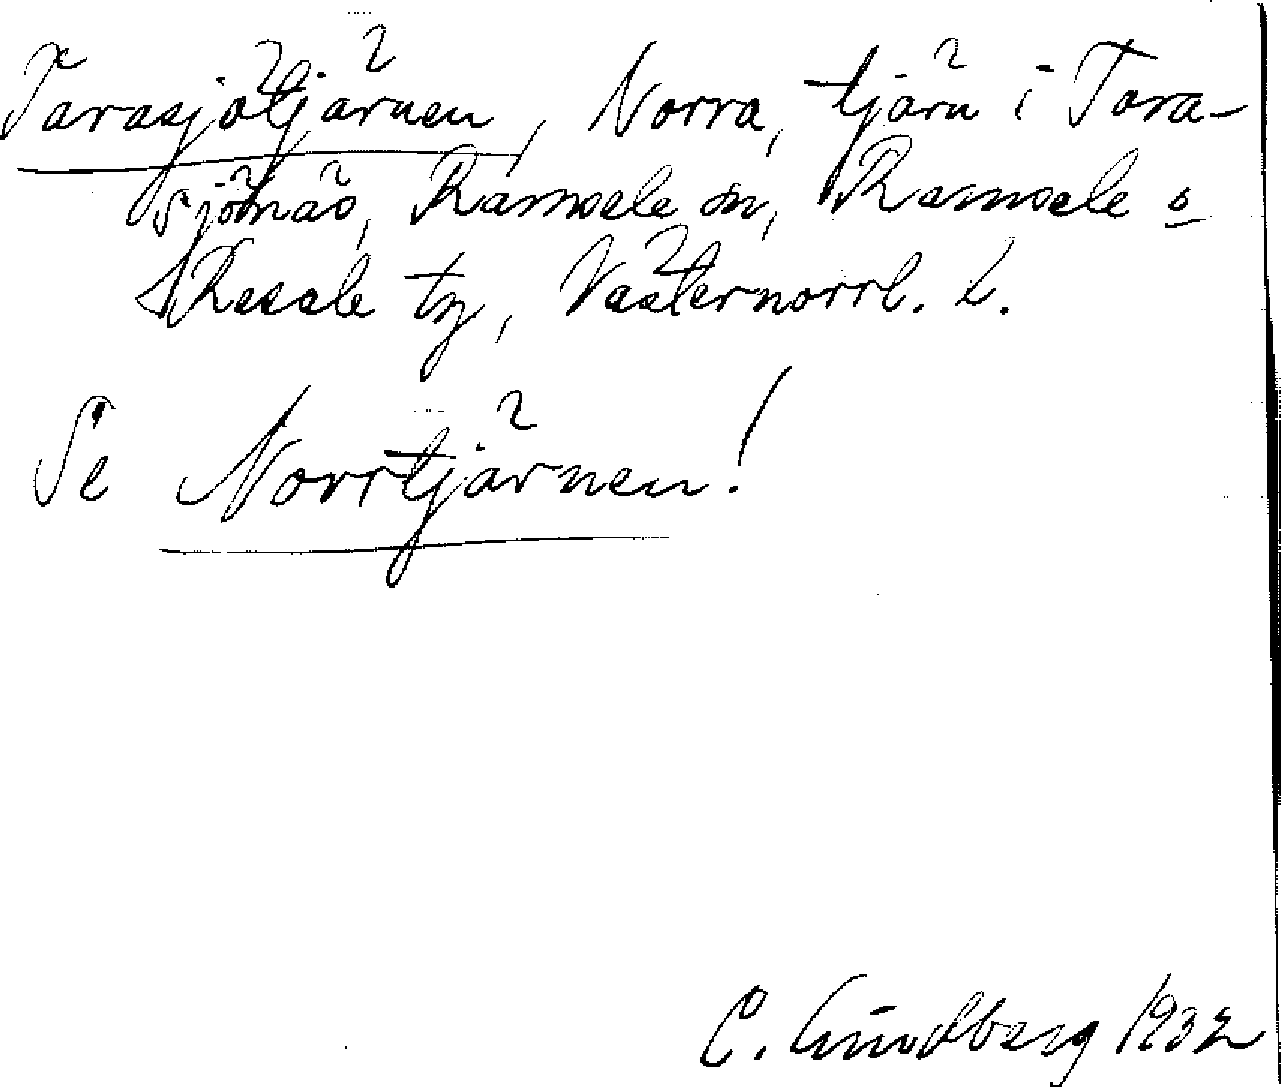 Tarasjötjärnen, Norra, tjärn i Tara-
sjönäs, Ramsele sn, Ramsele o
Resele tg, Västernorrl. L.
Se Norrtjärnen!
C. Lindberg 1932